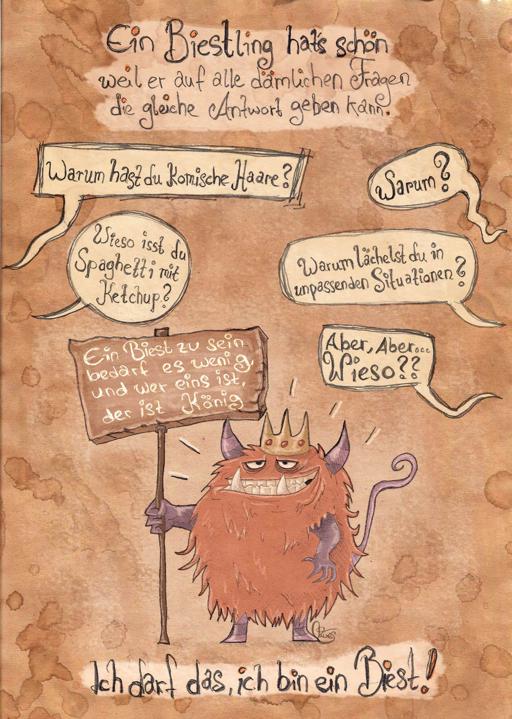 Ein Biestling hats schön
weil er auf alle dämlichen Fragen
die gleiche Antwort geben kann.
Warum hast du komische Haare?
Warum?
Wieso isst du
Spaghetti mit
Ketchup?
Warum lächelst du in
unpassenden Situationen?
Aber, Aber...
Wieso??
Ein Biest zu sein,
bedarf es wenig,
und wer eins ist,
der ist König
Ich darf das, ich bin ein Biest!